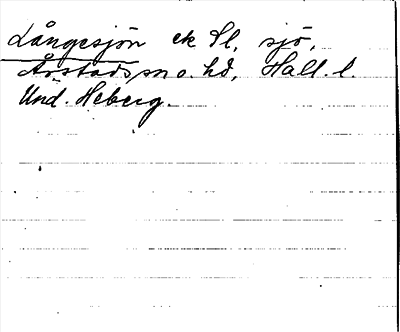 Långesjön ek Sl. sjö,
Årstads sn o. hd, Hall. l.
Und. Heberg.